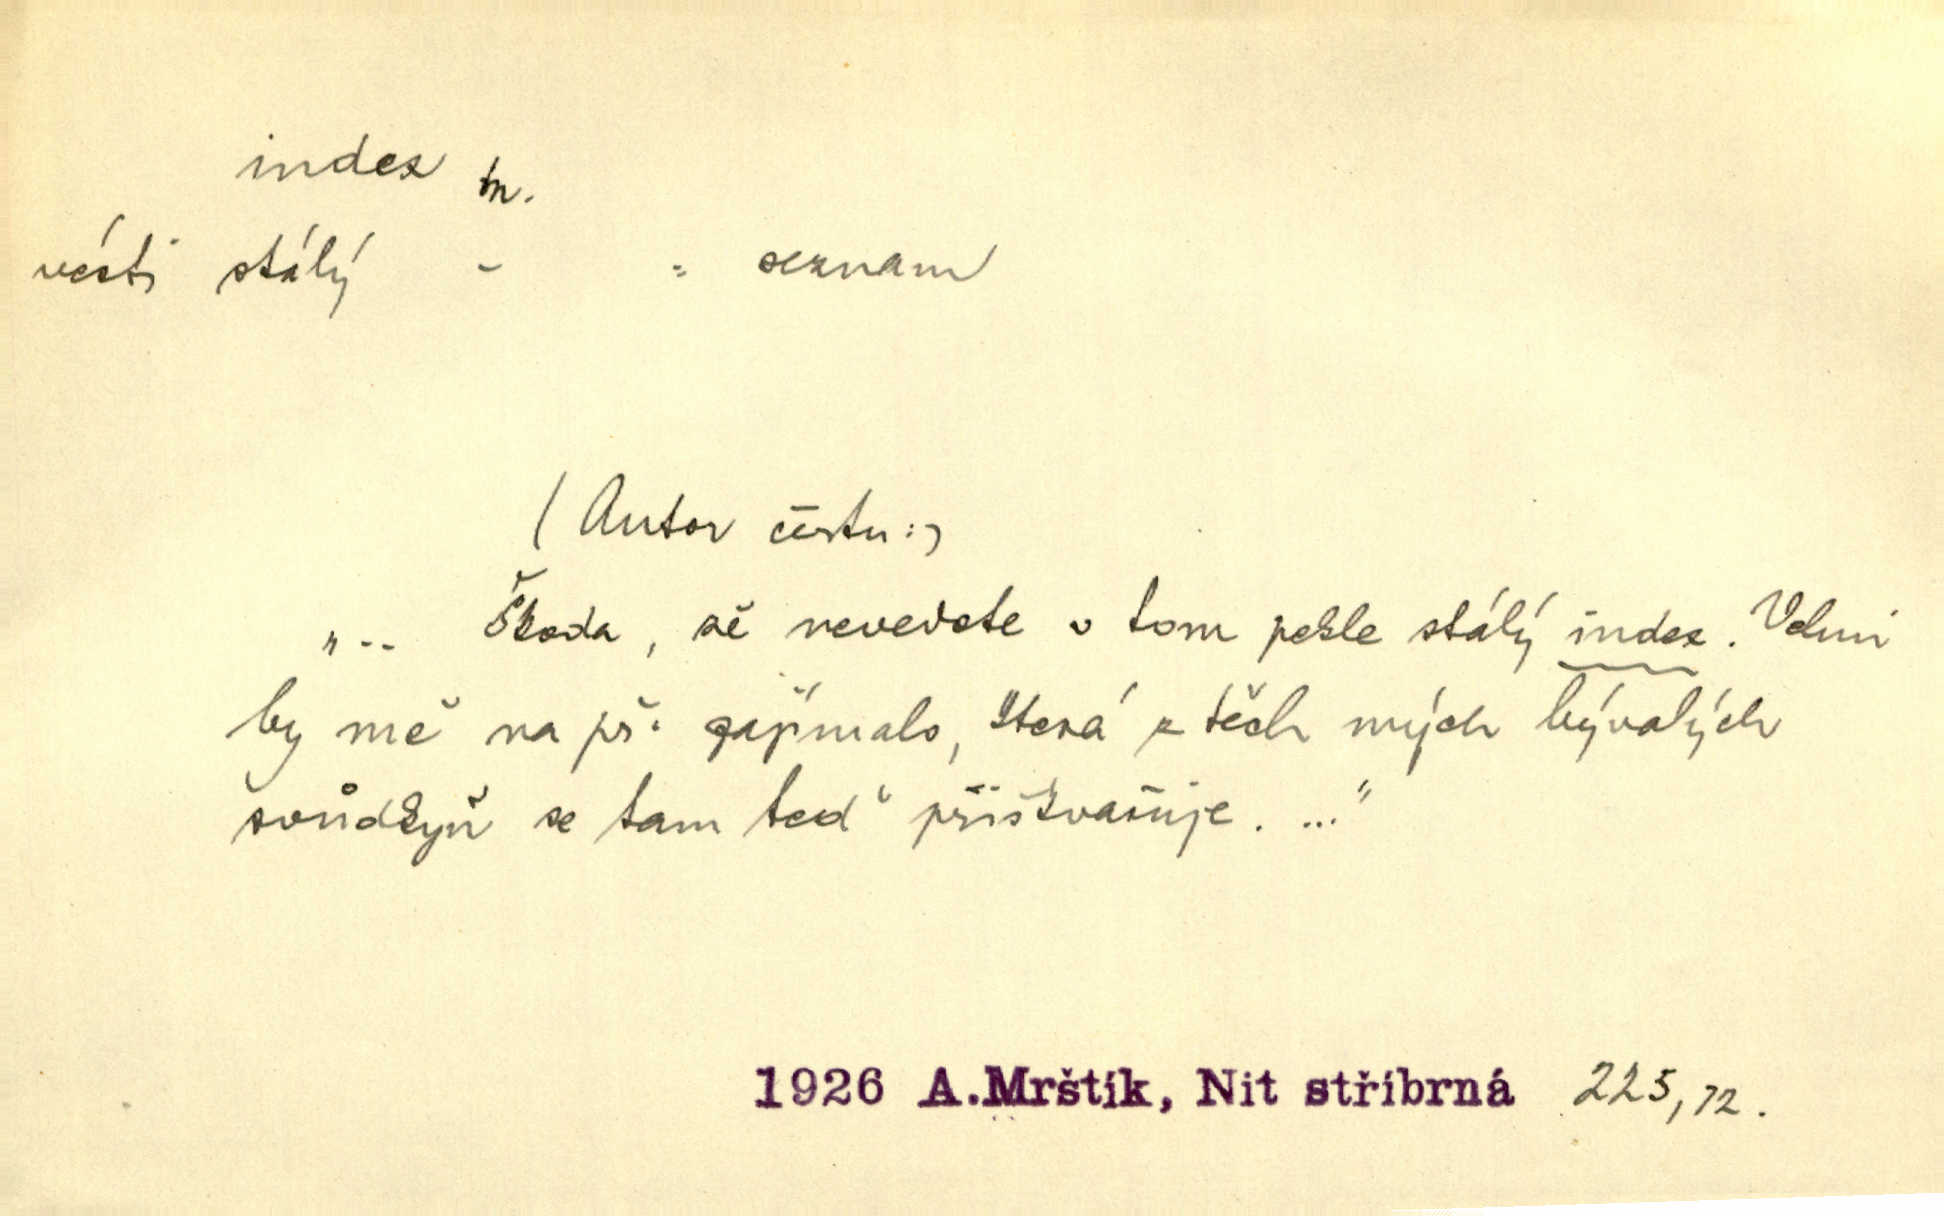 index m.
vésti stálý - = seznam
(Autor čertu:)
„.. Škoda, že nevedete v tom pekle stálý index. Velmi
by mě na př. zajímalo, která z těch mých bývalých
soudkyň se tam teď přiškvařuje. ..."
1926 A.Mrštík, Nit stříbrná 225, 72.